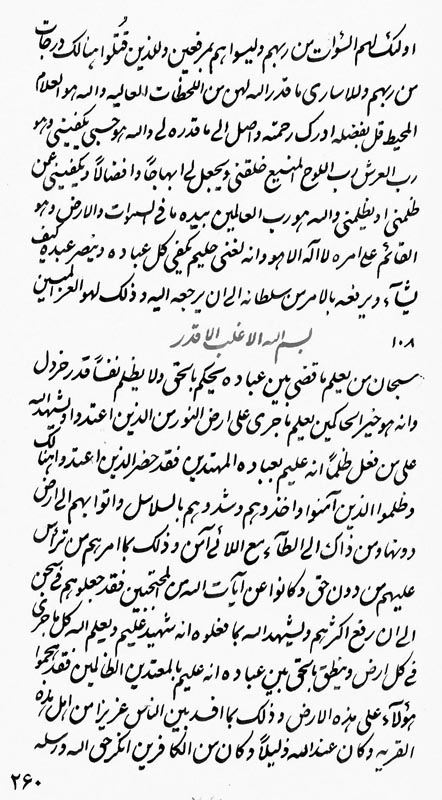 اولئك لهم السوآت من ربهم وليسوا هم بمرفعين وللذين قُتلوا هنالك درجات
من ربهم وللاسارى ما قدر الله لهن من اللحظات العاليه والله هو العلام
المحيط قل بفضله ادرك رحمته واصل الى ما قدره لى والله هو حسبى يكفينى وهو
رب العرش رب اللوح المنيع خلقنى ويجعل لى ابهاجاً وافضالاً ويكفينى عمن
ظلمنى او يظلمنى والله هو رب العالمين بيده ما فى السموات والارض وهو
القائم على امره لا اله الا هو وانه لغنى حليم يكفى كل عباده وينصر عبده كيف
يشآء ويرفعه بالامر من سلطانه الى ان يرجعه اليه وذلك لهو العز المبين
١٠٨ بسم الله الاغلب الاقدر
سبحان من يعلم ما قضى بين عباده يحكم بالحق ولا يظلم نفساً قدر خردل
وانه هو خير الحاكمين يعلم ما جرى على ارض النور من الذين اعتدوا ويشهد الله
على من فعل ظلماً انه عليم بعباده المهتدين فقد حضر الذين اعتدوا هنالك
وظلموا الذين آمنوا واخذوهم وشدوهم بالسلاسل واتوا بهم الى ارض
دونها ومن ذاك الى الطآء مع اللائى آمن وذلك بما امرهم من ترأس
عليهم من دون حق وكانوا عن آيات الله من المحتجبين فقد جعلوهم فى سجن
الى ان رفع اكثرهم ويشهد الله بما فعلوه انه شهيد عليم ويعلم الله كل ما جرى
فى كل ارض وينطق بالحق بين عباده انه عليم بالمعتدين الظالمين فقد هجموا
هؤلآء على هذه الارض وذلك بما افسد بين الناس عزيزا من اهل هذه
القريه وكان عند الله ذليلاً وكان من الكافرين انكر حق الله ورسله
٢٦٠